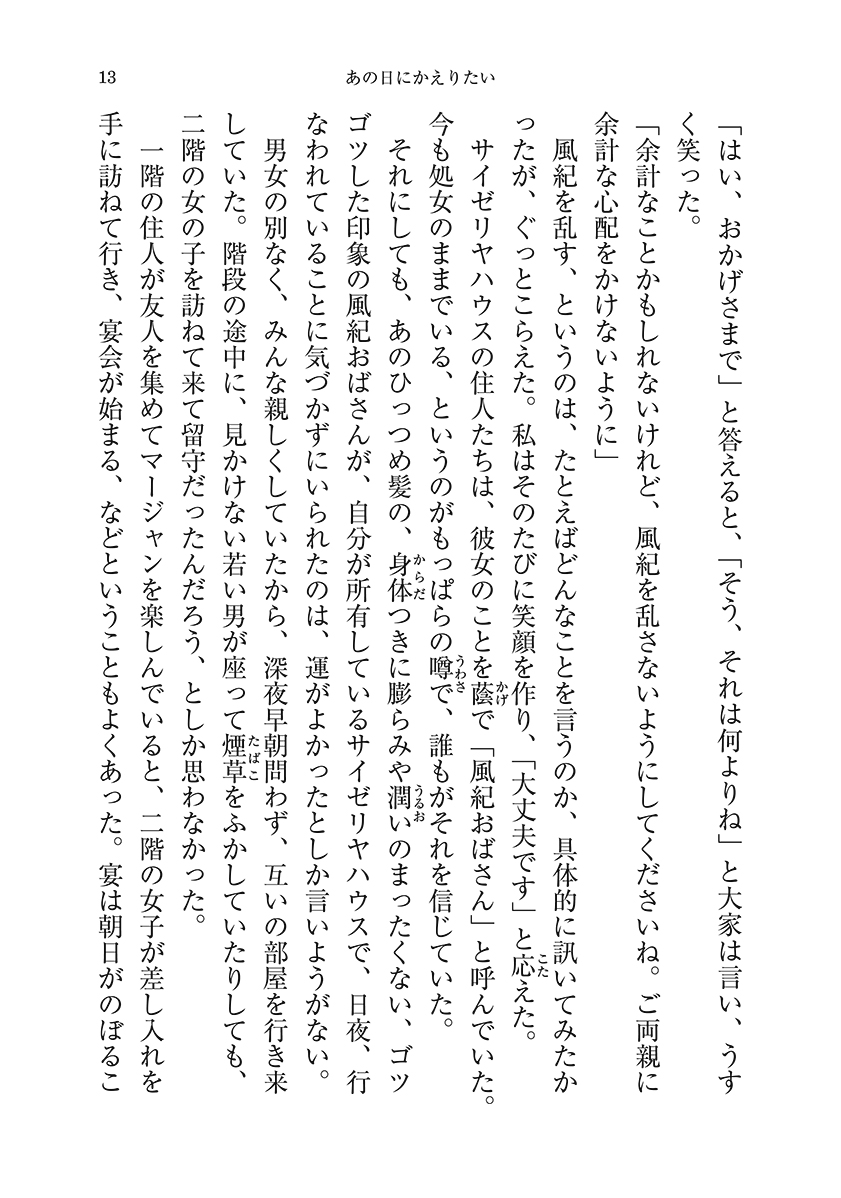 13
あの日にかえりたい
「はい、おかげさまで」と答えると、「そう、それは何よりね」と大家は言い、うす
く笑った。
「余計なことかもしれないけれど、風紀を乱さないようにしてくださいね。ご両親に
余計な心配をかけないように」
　風紀を乱す、というのは、たとえばどんなことを言うのか、具体的に訊いてみたか
ったが、ぐっとこらえた。私はそのたびに笑顔を作り、「大丈夫です」と応えた。
　サイゼリヤハウスの住人たちは、彼女のことを蔭で「風紀おばさん」と呼んでいた。
今も処女のままでいる、というのがもっぱらの噂で、誰もがそれを信じていた。
　それにしても、あのひっつめ髪の、身体つきに膨らみや潤いのまったくない、ゴツ
ゴツした印象の風紀おばさんが、自分が所有しているサイゼリヤハウスで、日夜、行
なわれていることに気づかずにいられたのは、運がよかったとしか言いようがない。
　男女の別なく、みんな親しくしていたから、深夜早朝問わず、互いの部屋を行き来
していた。階段の途中に、見かけない若い男が座って煙草をふかしていたりしても、
二階の女の子を訪ねて来て留守だったんだろう、としか思わなかった。
　一階の住人が友人を集めてマージャンを楽しんでいると、二階の女子が差し入れを
手に訪ねて行き、宴会が始まる、などということもよくあった。宴は朝日がのぼるこ